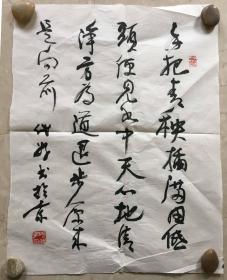 手把青秧插满田低
頭便見水中天心地清
淨方为道退步原来
是向前
书於京